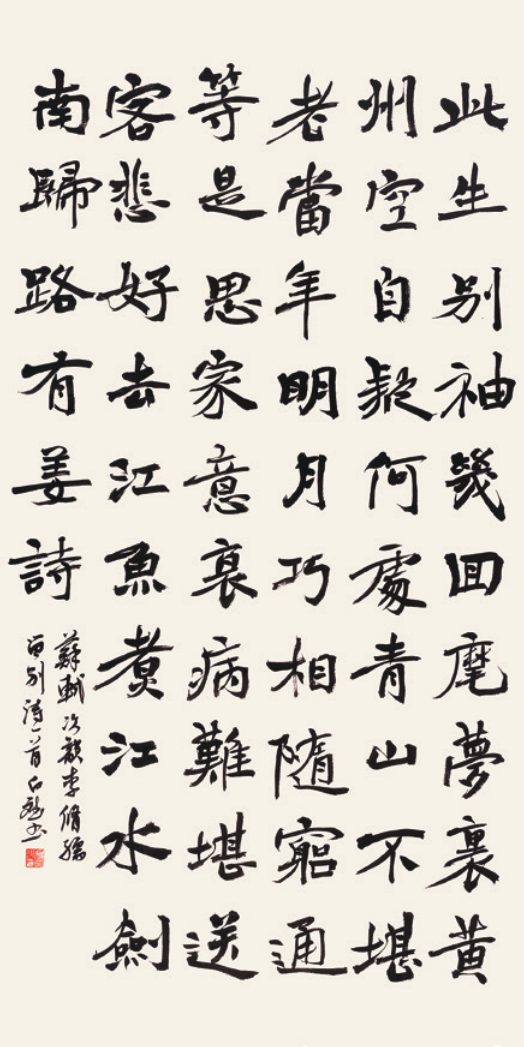 此生别袖幾回麾夢裏黃
州空自疑何處青山不堪
老當年明月巧相隨窮通
等是思家意衰病難堪送
客悲好去江魚煮江水劍
南歸路有姜詩
蘇軾次韻李脩孺
留别詩一首書